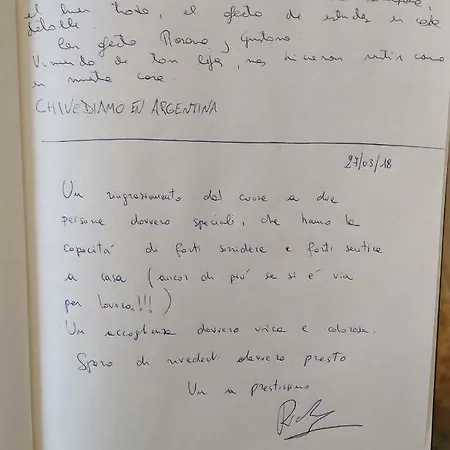 el buen trato, el afecto de ustedes en cada
detalle.
Con afecto Rosana y Gustavo.
Viniendo de tan lejos, nos hicieron sentir como
en nuestra casa.
CHIVEDIAMO EN ARGENTINA
27/03/18
Un ringraziamento dal cuore a due
persone davvero speciali, che hanno la
capacità di farti sorridere e farti sentire
a casa (ancor di più se si è via
per lavoro!!!)
Un accoglienza davvero unica e calorosa.
Spero di rivederti davvero presto
Un a prestissimo